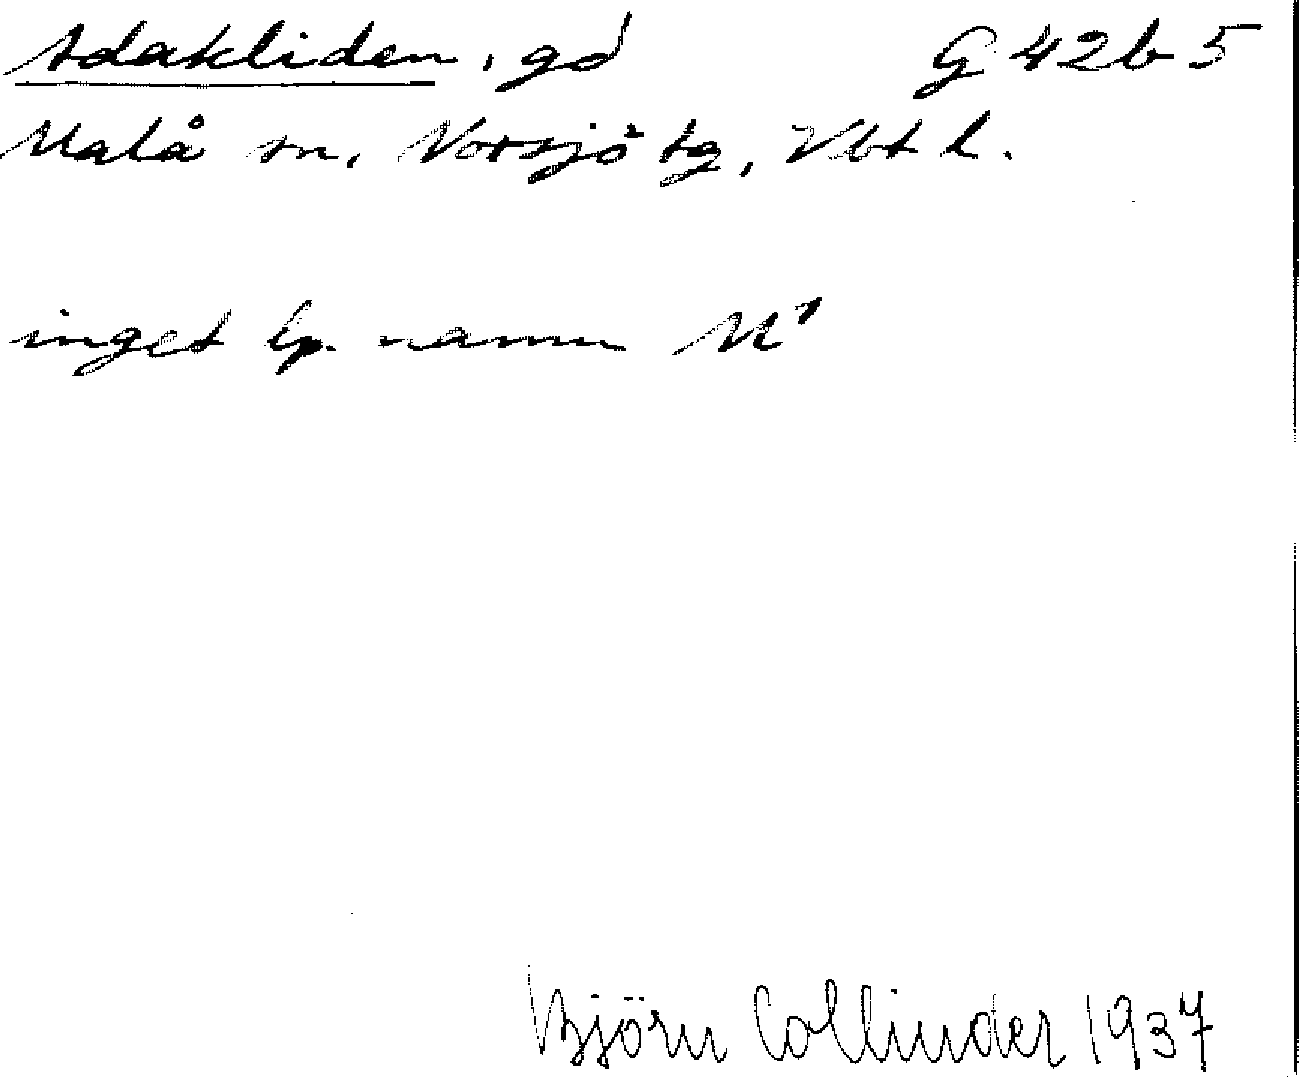 Adakliden, gd G 42b 5
Malå sn, Norsjö tg, Vbt l.
inget lp. namn M¹
Björn Collinder 1937